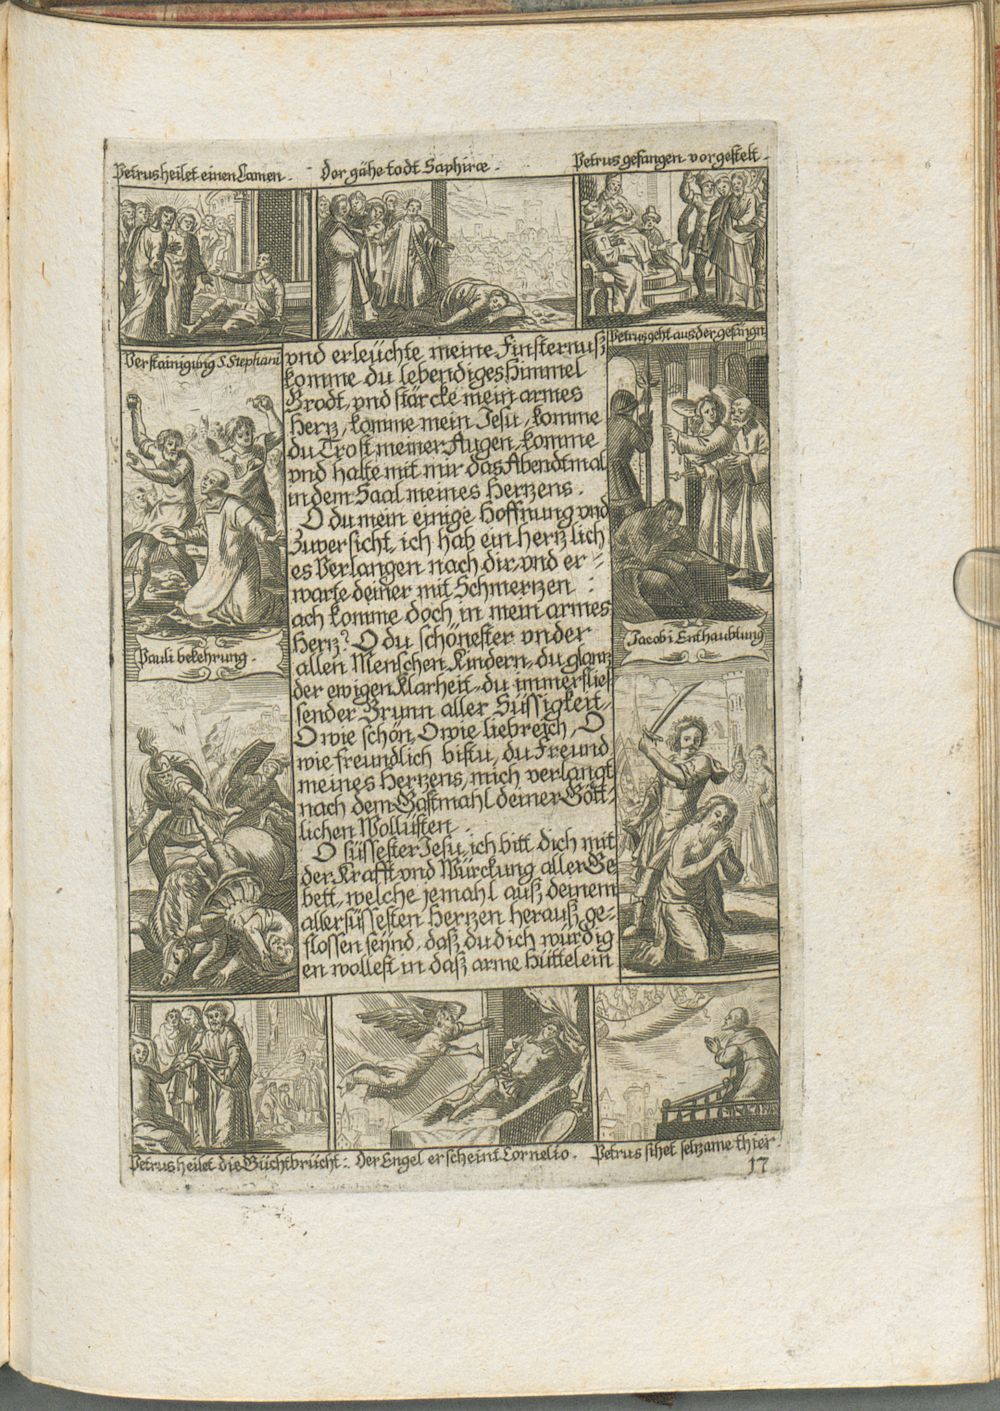 Petrus heilet einen Lamen.
Der gähe todt Saphiræ.
Petrus gefangen vorgestelt.
Verstainigung S. Stephani
Petrus geht aus der gefängn
vnd erleüchte meine Finsternuß
komme du lebendiges Himmel
Brodt, vnd stärcke mein armes
Hertz, komme mein Jesu, komme
du Trost meiner Augen, komme
vnd halte mit mir das Abendtmal
in dem Saal meines Hertzens.
O du mein einige Hoffnung vnd
Zuversicht, ich hab ein hertzlich
es Verlangen nach dir, vnd er-
warte deiner mit Schmertzen
ach komme doch in mein armes
Hertz? O du schönester vnder
allen Menschen Kindern, du glantz
der ewigen Klarheit, du immerflies
sender Brunn aller Süssigkeit,
O wie schön, O wie liebreich, O
wie freundlich bistu, du Freund
meines Hertzens, mich verlangt
nach dem Gastmahl deiner Gött-
lichen Wollüsten.
O süssester Jesu, ich bitt dich mit
der Krafft vnd Würckung aller Ge
bett, welche jemahl auß deinem
allersüssesten Hertzen herauß ge-
flossen seÿnd, daß du dich würdig
en wollest in daß arme Hüttelein
Pauli bekehrung.
Jacobi Enthaubtung
Petrus heilet die Güchtbrücht:
Der Engel erscheint Cornelio.
Petrus sihet seltzame thier.
17